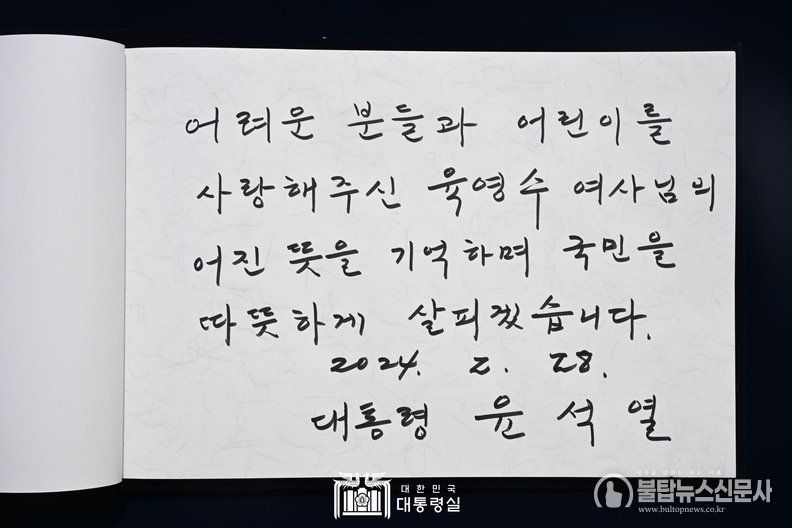 어려운 분들과 어린이를
사랑해주신 육영수 여사님의
어진 뜻을 기억하며 국민을
따뜻하게 살피겠습니다.
2024. 2. 28.
대통령 윤석열
대한민국
대통령실
불탑뉴스신문사
www.bultopnews.co.kr